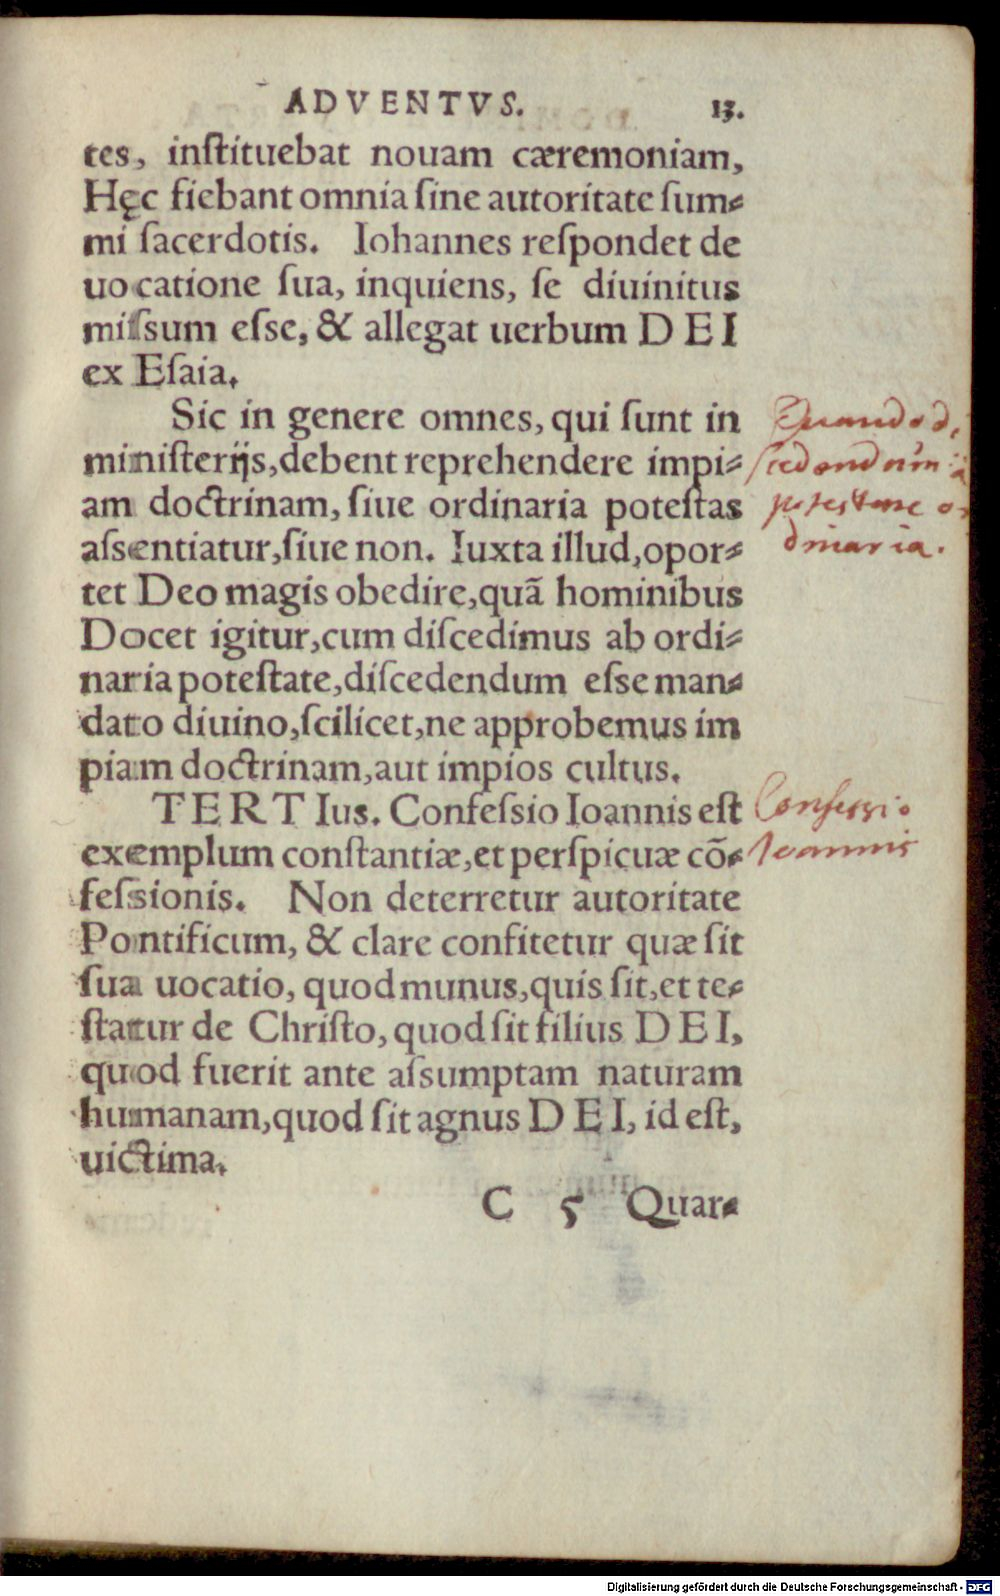 ADVENTVS. 13.
tes, inſtituebat nouam cæremoniam,
Hęc fiebant omnia ſine autoritate ſum-
mi ſacerdotis. Iohannes reſpondet de
uocatione ſua, inquiens, ſe diuinitus
miſsum eſse, & allegat uerbum DEI
ex Eſaia.
Sic in genere omnes, qui ſunt in
miniſterijs, debent reprehendere impi-
am doctrinam, ſiue ordinaria poteſtas
aſsentiatur, ſiue non. Iuxta illud, opor-
tet Deo magis obedire, quã hominibus
Docet igitur, cum diſcedimus ab ordi-
naria poteſtate, diſcedendum eſse man-
dato diuino, ſcilicet, ne approbemus im
piam doctrinam, aut impios cultus.
TERTIus. Confeſsio Ioannis eſt
exemplum conſtantiæ, et perſpicuæ cõ-
feſsionis. Non deterretur autoritate
Pontificum, & clare confitetur quæ ſit
ſua uocatio, quod munus, quis ſit, et te-
ſtatur de Chriſto, quod ſit filius DEI,
quod fuerit ante aſsumptam naturam
humanam, quod ſit agnus DEI, id eſt,
uictima.
C 5 Quar-
Quando di
scedendum a
potestate or
dinaria.
Confessio
Ioannis
Digitalisierung gefördert durch die Deutsche Forschungsgemeinschaft - DFG